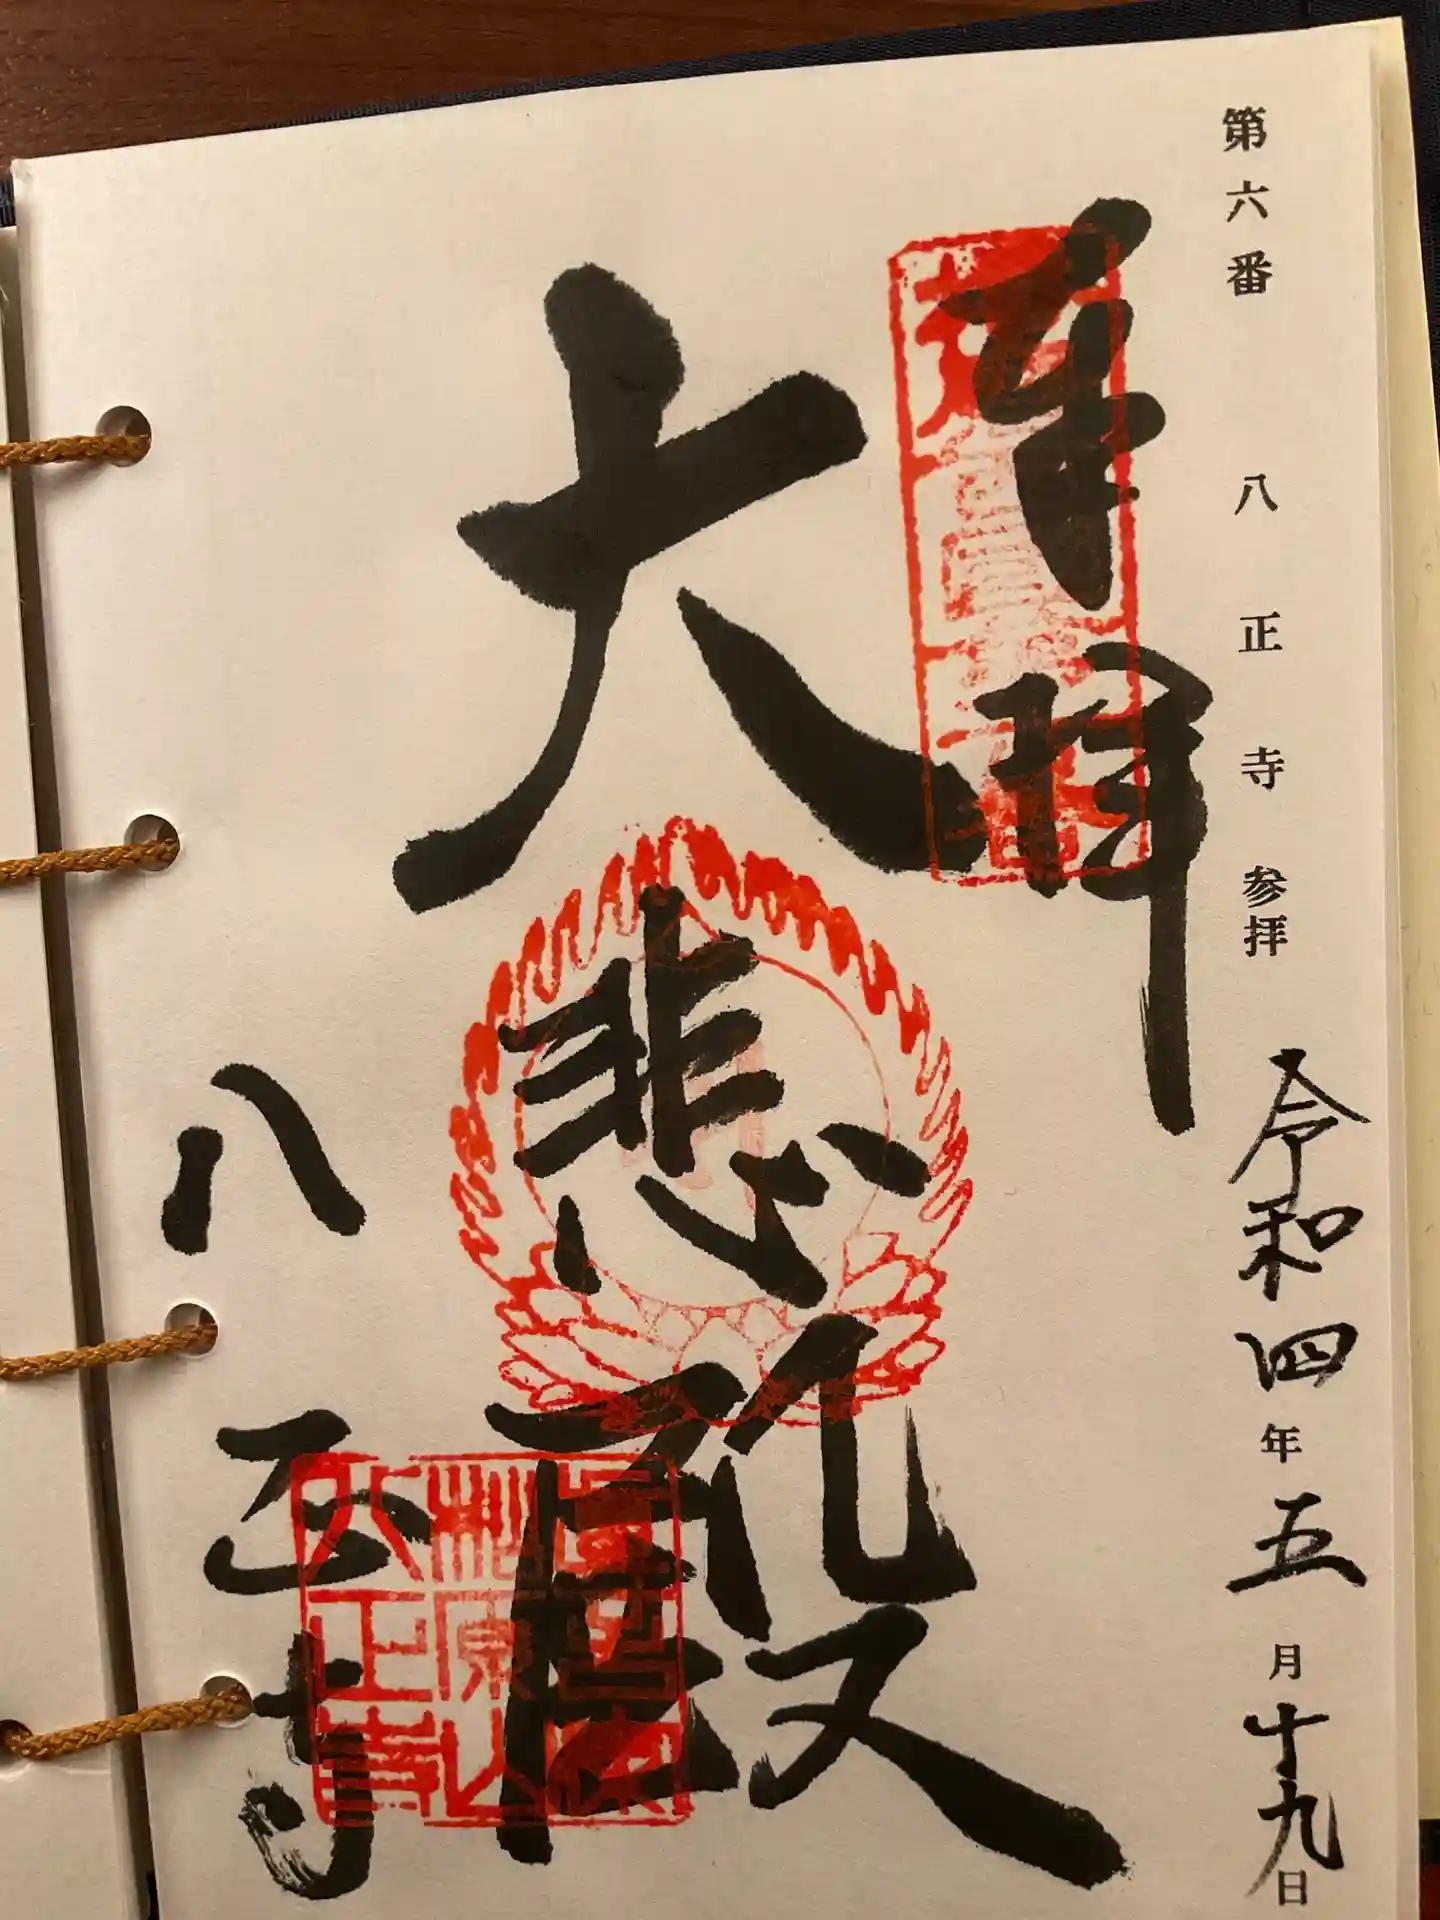 第六番 八正寺参拝 令和四年五月十九日
奉拝
大悲殿
八正寺